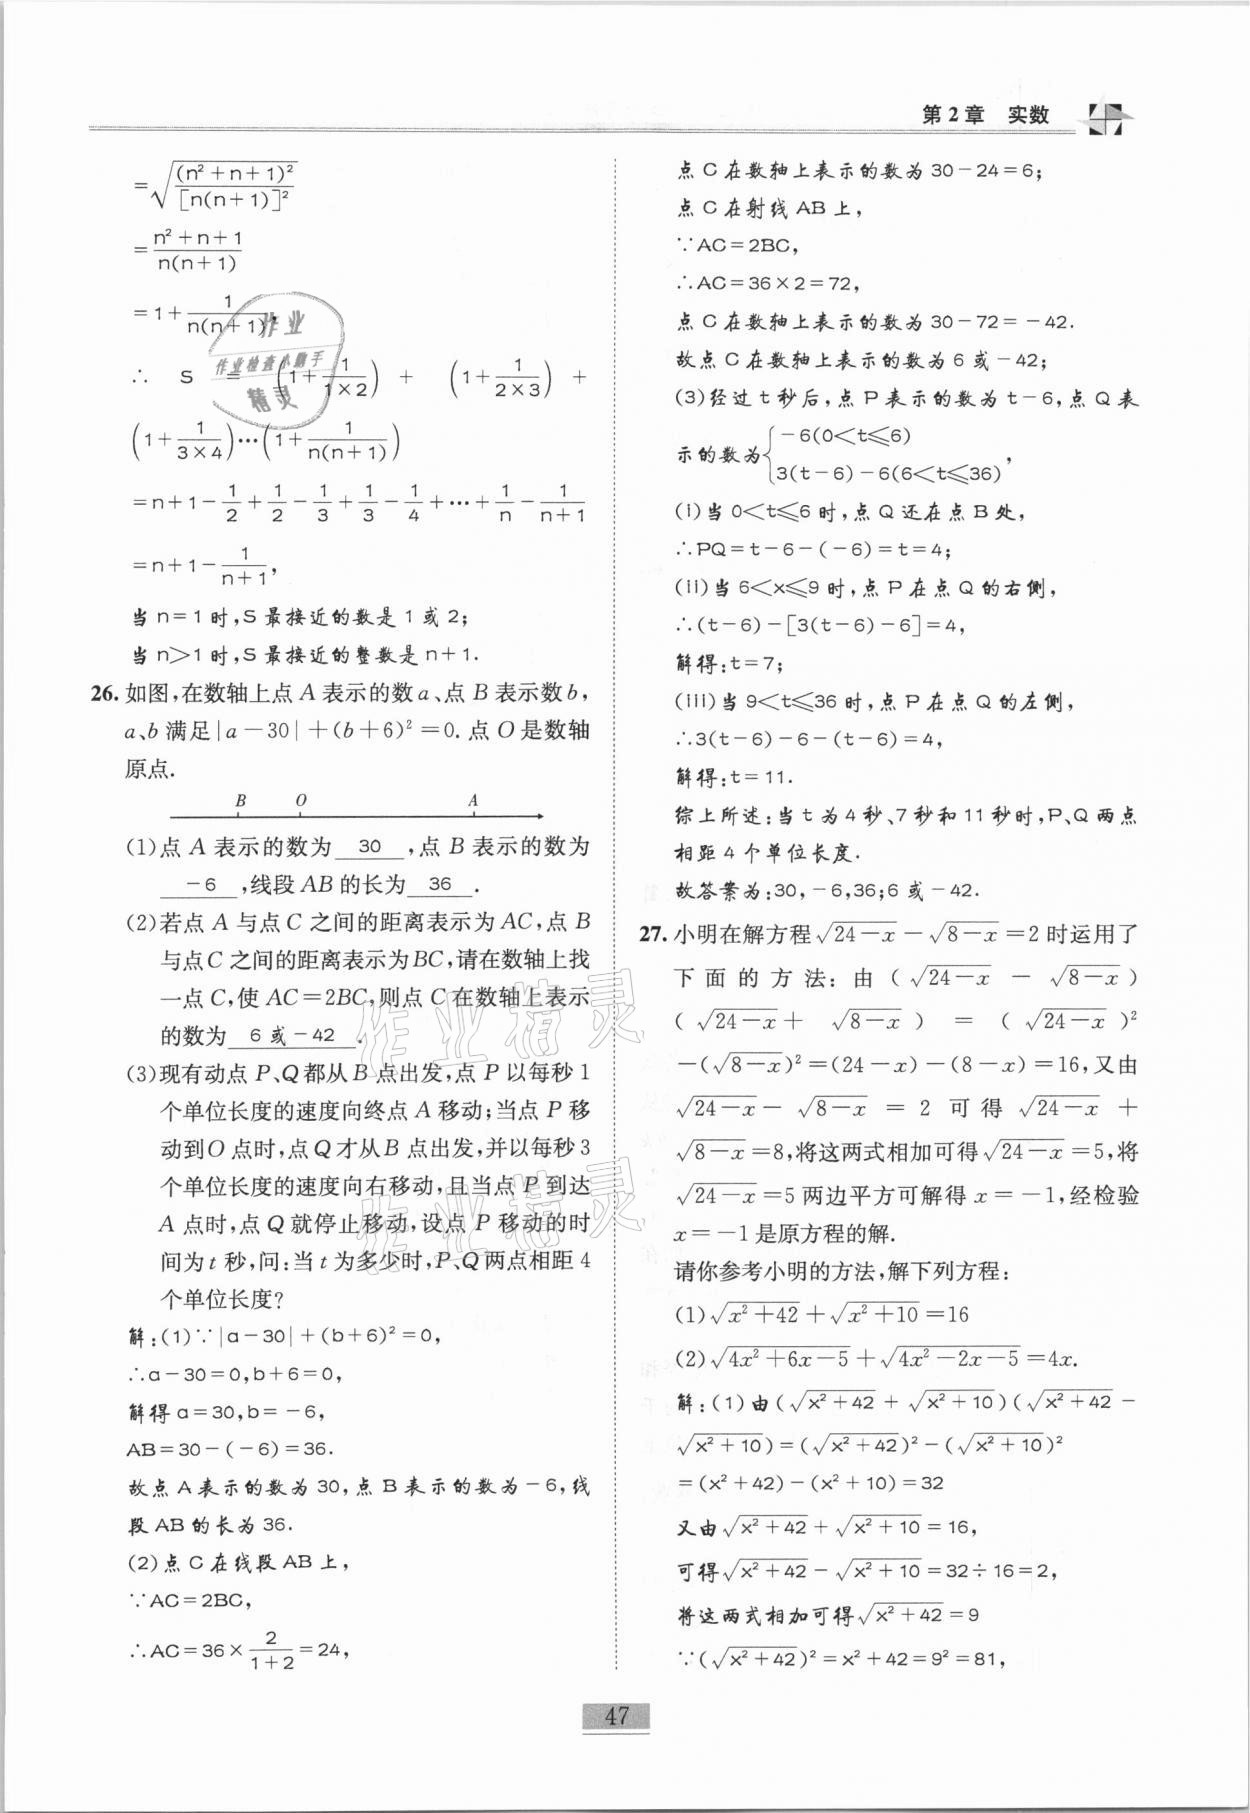 第2章 实数
=√((n²+n+1)²/[n(n+1)]²)
=(n²+n+1)/(n(n+1))
=1+1/(n(n+1)),
∴ S = (1+1/(1×2)) + (1+1/(2×3)) +
(1+1/(3×4))…(1+1/(n(n+1)))
=n+1-1/2+1/2-1/3+1/3-1/4+…+1/n-1/(n+1)
=n+1-1/(n+1),
当n=1时,S最接近的数是1或2;
当n>1时,S最接近的整数是n+1.
26.如图,在数轴上点A表示的数a、点B表示数b,
a、b满足|a-30|+(b+6)²=0.点O是数轴
原点.
B O A
(1)点A表示的数为 30 ,点B表示的数为
-6 ,线段AB的长为 36 .
(2)若点A与点C之间的距离表示为AC,点B
与点C之间的距离表示为BC,请在数轴上找
一点C,使AC=2BC,则点C在数轴上表示
的数为 6或-42 .
(3)现有动点P、Q都从B点出发,点P以每秒1
个单位长度的速度向终点A移动;当点P移
动到O点时,点Q才从B点出发,并以每秒3
个单位长度的速度向右移动,且当点P到达
A点时,点Q就停止移动,设点P移动的时
间为t秒,问:当t为多少时,P、Q两点相距4
个单位长度?
解:(1)∵|a-30|+(b+6)²=0,
∴a-30=0,b+6=0,
解得a=30,b=-6,
AB=30-(-6)=36.
故点A表示的数为30,点B表示的数为-6,线
段AB的长为36.
(2)点C在线段AB上,
∵AC=2BC,
∴AC=36×2/(1+2)=24,
点C在数轴上表示的数为30-24=6;
点C在射线AB上,
∵AC=2BC,
∴AC=36×2=72,
点C在数轴上表示的数为30-72=-42.
故点C在数轴上表示的数为6或-42;
(3)经过t秒后,点P表示的数为t-6,点Q表
示的数为{-6(0<t≤6)
3(t-6)-6(6<t≤36),
(i)当0<t≤6时,点Q还在点B处,
∴PQ=t-6-(-6)=t=4;
(ii)当6<x≤9时,点P在点Q的右侧,
∴(t-6)-[3(t-6)-6]=4,
解得:t=7;
(iii)当9<t≤36时,点P在点Q的左侧,
∴3(t-6)-6-(t-6)=4,
解得:t=11.
综上所述:当t为4秒、7秒和11秒时,P、Q两点
相距4个单位长度.
故答案为:30,-6,36;6或-42.
27.小明在解方程√(24-x)-√(8-x)=2时运用了
下面的方法:由(√(24-x) - √(8-x))
(√(24-x)+ √(8-x)) = (√(24-x))²
-(√(8-x))²=(24-x)-(8-x)=16,又由
√(24-x)-√(8-x)=2可得√(24-x)+
√(8-x)=8,将这两式相加可得√(24-x)=5,将
√(24-x)=5两边平方可解得x=-1,经检验
x=-1是原方程的解.
请你参考小明的方法,解下列方程:
(1)√(x²+42)+√(x²+10)=16
(2)√(4x²+6x-5)+√(4x²-2x-5)=4x.
解:(1)由(√(x²+42)+√(x²+10))(√(x²+42)-
√(x²+10))=(√(x²+42))²-(√(x²+10))²
=(x²+42)-(x²+10)=32
又由√(x²+42)+√(x²+10)=16,
可得√(x²+42)-√(x²+10)=32÷16=2,
将这两式相加可得√(x²+42)=9
∵(√(x²+42))²=x²+42=9²=81,
47
作业
作业检查小助手
精灵
作业精灵
作业精灵